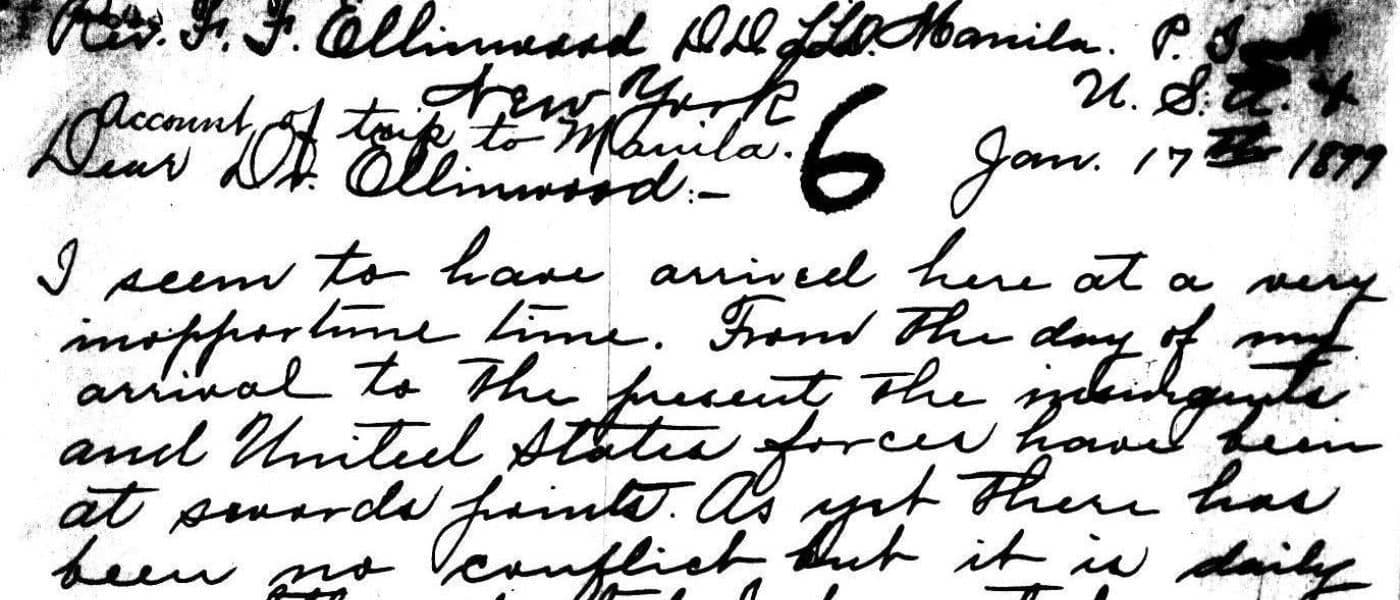 Rev. F. F. Ellinwood D.D. LLD. Manila. P. I.
New York U. S. A.
Account of trip to Manila. 6
Dear Dr. Ellinwood:— Jan. 17th 1899
I seem to have arrived here at a very
inopportune time. From the day of my
arrival to the present the insurgents
and United States forces have been
at swords points. As yet there has
been no conflict but it is daily